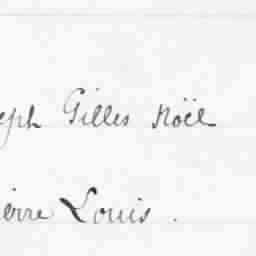 eph Gilles Noël
ierre Louis .